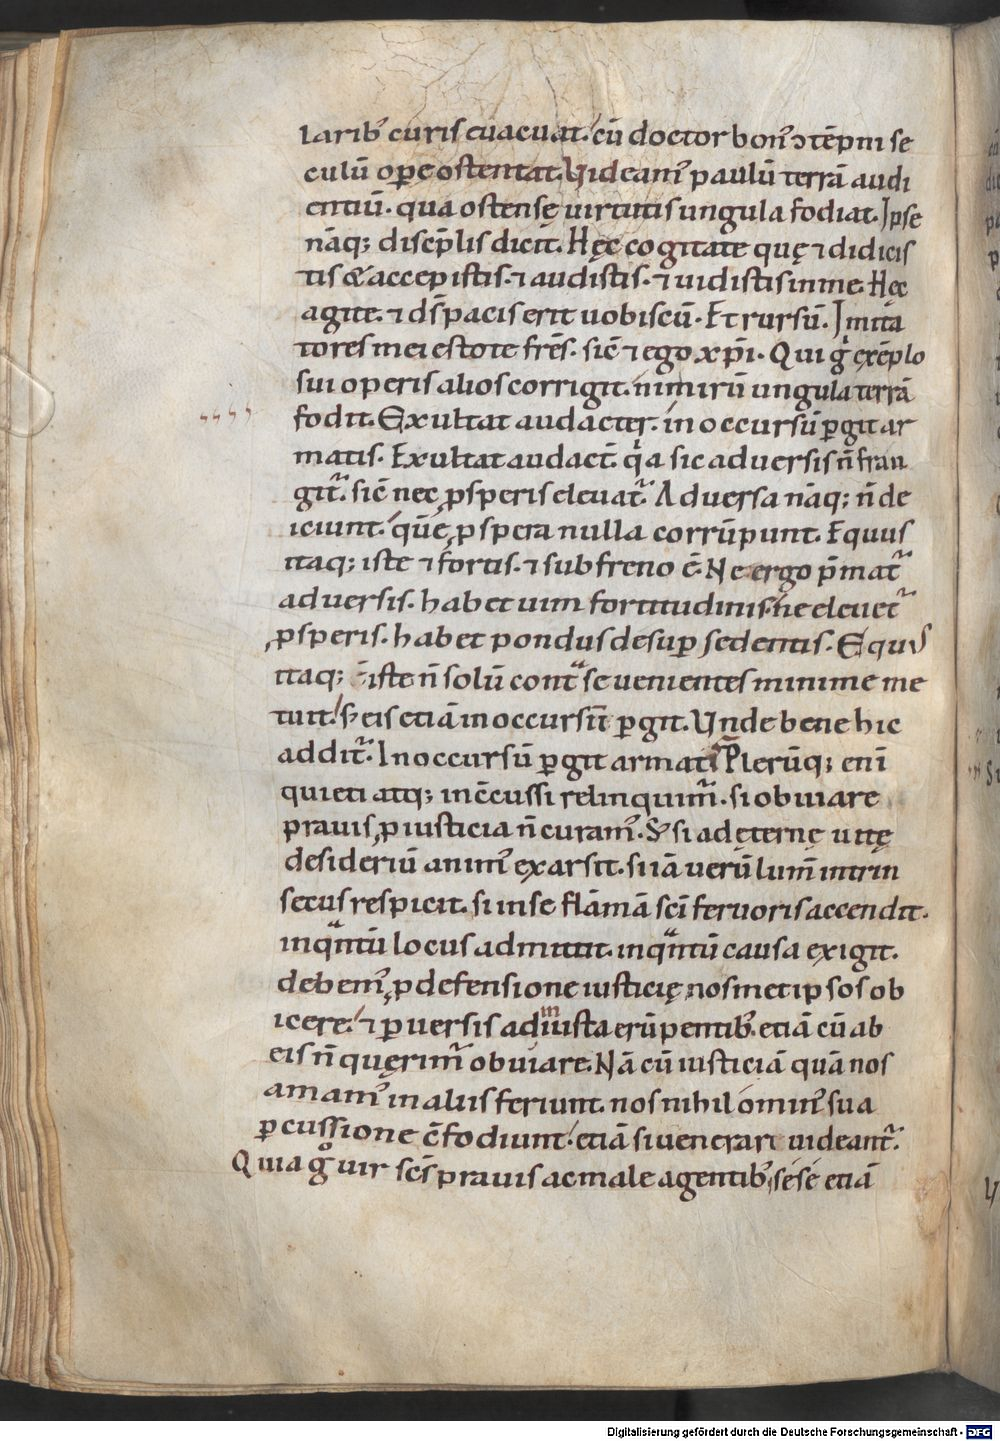 laribꝰ curis euacuat. cū doctor bonꝰ ↄtēpni se
culū oꝑe ostentat. Uideamꝰ paulū terrā audi
entiū. qua ostensę uirtutis ungula fodiat. Ipse
nāq; discip̄lis dicit. Hęc cogitate quę ⁊ didicis
tis & accepistis. ⁊ audistis. ⁊ uidistis in me. Hęc
agite. ⁊ ds̄ pacis erit uobiscū. Et rursū. Imita
tores mei estote frēs. sic̄ ⁊ ego xp̄i. Qui gͥ exēplo
sui operis alios corrigit. nimirū ungula terrā
fodit. Exultat audacter. in occursū ꝑgit ar
matis. Exultat audact̄. qͥa sic aduersis n̄ fran
git᷑. sic̄ nec ꝓsperis eleuat᷑. Aduersa nāq; n̄ de
iciunt. quē ꝓspera nulla corrūpunt. Equus
itaq; iste ⁊ fortis. ⁊ sub freno ē. Ne ergo p̄mat᷑
aduersis. habet uim fortitudinis. ne eleuet᷑
ꝓsperis. habet pondus desuꝑ sedentis. Equus
itaq; iste n̄ solū contᷓ se uenientes minime me
tuit. sꝫ eis etiā in occursū ꝑgit. Unde bene hic
addit᷑. In occursū ꝑgit armatis. Plerūq; eni
quieti atq; incc̄ussi relinquim᷑. si obuiare
prauis ꝓ iusticia n̄ curamꝰ. Sꝫ si ad ęternę uitę
desideriū animꝰ exarsit. si iā uerū lum̄ intrin
secus respicit. si in se flāmā sc̄i feruoris accendit.
inqᷓntū locus admittit. inqᷓntū causa exigit.
debemꝰ ꝓ defensione iusticię nosmet ipsos ob
icere. ⁊ ꝑuersis ad iniusta erūpentibꝰ. etiā cū ab
eis n̄ quęrim᷑ obuiare. Nā cū iusticiā quā nos
amamꝰ in aliis feriunt. nos nihilominꝰ sua
ꝑcussione c̄fodiunt. etiā si uenerari uideant᷑.
Quia gͦ uir sc̄s prauis ac male agentibꝰ sese etiā
Digitalisierung gefördert durch die Deutsche Forschungsgemeinschaft - DFG